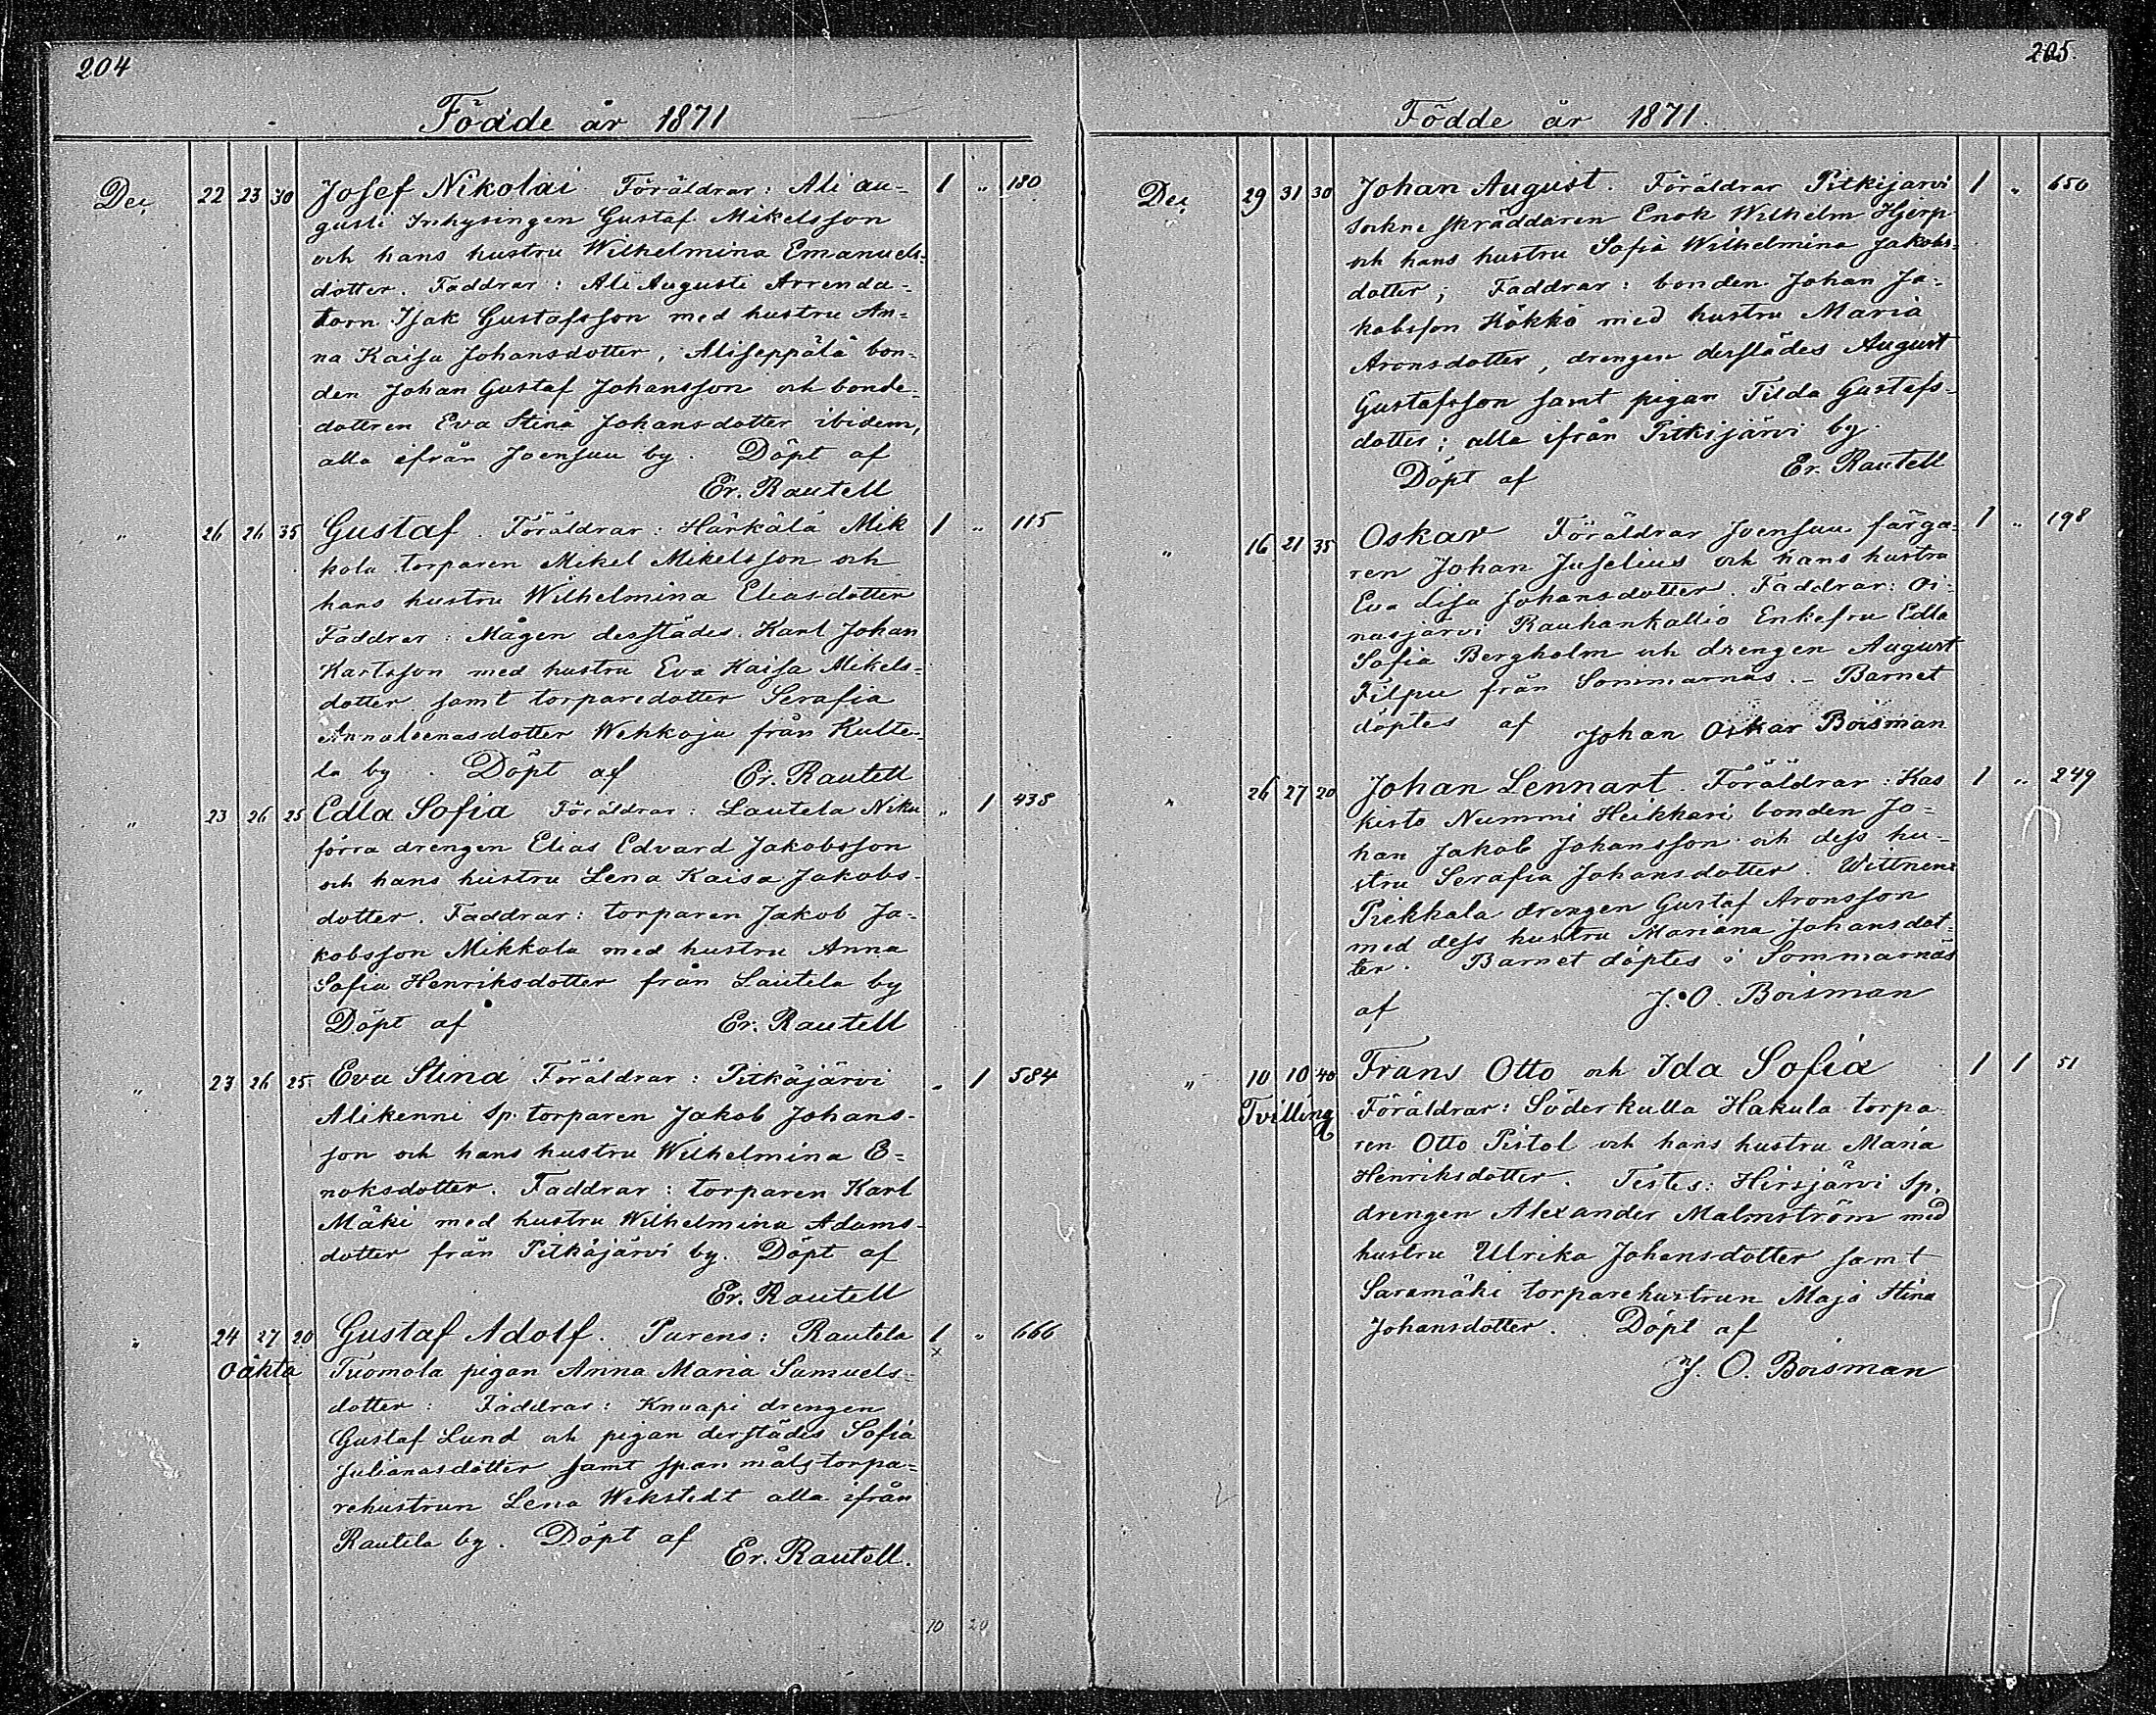 204
Födde år 1871
Dec 22 23 30 Josef Nikolai. Föräldrar: Ali au= 1 " 180
gusti Inhysingen Gustaf Mikelsson
och hans hustru Wilhelmina Emanuels=
dotter. Faddrar: Ali Augusti Arrenda=
torn Isak Gustafsson med hustru An=
na Kaisa Johansdotter, Aliseppälä bon=
den Johan Gustaf Johansson och bonde=
dottren Eva Stina Johansdotter ibidem,
alla ifrån Joensuu by. Döpt af
Er. Rautell
" 26 26 35 Gustaf. Föräldrar: Härkälä Mik 1 " 115
kola torparen Mikel Mikelsson och
hans hustru Wilhelmina Eliasdotter
Faddrar: Mågen derstädes Karl Johan
Karlsson med hustru Eva Kaisa Mikels=
dotter samt torparedotter Serafia
Annaleenasdotter Wehkoja från Kulte=
la by. Döpt af Er. Rautell
" 23 26 25 Edla Sofia Föräldrar: Lautela Niku " 1 438
förra drengen Elias Edvard Jakobsson
och hans hustru Lena Kaisa Jakobs=
dotter. Faddrar: torparen Jakob Ja=
kobsson Mikkola med hustru Anna
Sofia Henriksdotter från Lautela by
Döpt af Er. Rautell
" 23 26 25 Eva Stina Föräldrar: Pitkäjärvi " 1 584
Alikenni Sp. torparen Jakob Johans=
son och hans hustru Wilhelmina E=
noksdotter. Faddrar: torparen Karl
Mäki med hustru Wilhelmina Adams=
dotter från Pitkäjärvi by. Döpt af
Er. Rautell
" 24 27 20 Gustaf Adolf. Parens: Rautela 1 " 666
oäkta Tuomola pigan Anna Maria Samuels= x
dotter: Faddrar: Knaapi drengen
Gustaf Lund och pigan derstädes Sofia
Julianasdotter samt spanmålstorpa=
rehustrun Lena Wikstedt alla ifrån
Rautela by. Döpt af Er. Rautell.
10 20
205.
Födde år 1871.
Dec 29 31 30 Johan August. Föräldrar Pitkijärvi 1 " 650
sockne skräddaren Enok Wilhelm Hjerp
och hans hustru Sofia Wilhelmina Jakobs=
dotter; Faddrar: bonden Johan Ja=
kobsson Kökkö med hustru Maria
Aronsdotter, drengen derstädes August
Gustafsson samt pigan Tilda Gustafs=
dotter; alla ifrån Pitkijärvi by.
Döpt af Er. Rautell
" 16 21 35 Oskar Föräldrar Joensuu färga= 1 " 198
ren Johan Juselius och hans hustru
Eva Lisa Johansdotter. Faddrar: Oi=
nasjärvi Rauhankallio Enkefru Edla
Sofia Bergholm och drengen August
Filpu från Sommarnäs. - Barnet
döptes af Johan Oskar Boisman
" 26 27 20 Johan Lennart. Föräldrar: Kas 1 " 249
kisto Nummi Heikkari bonden Jo=
han Jakob Johansson och dess hu=
stru Serafia Johansdotter. Wittnen:
Piekkala drengen Gustaf Aronsson
med dess hustru Mariana Johansdot=
ter. Barnet döptes i Sommarnäs
af J. O. Boisman
" 10 10 40 Frans Otto och Ida Sofia 1 1 51
Tvilling Föräldrar: Söderkulla Hakula torpa=
ren Otto Pistol och hans hustru Maria
Henriksdotter. Testes: Hirsjärvi Sp.
drengen Alexander Malmström med
hustru Ulrika Johansdotter samt
Saramäki torparehustrun Maja Stina
Johansdotter. Döpt af
J. O. Boisman